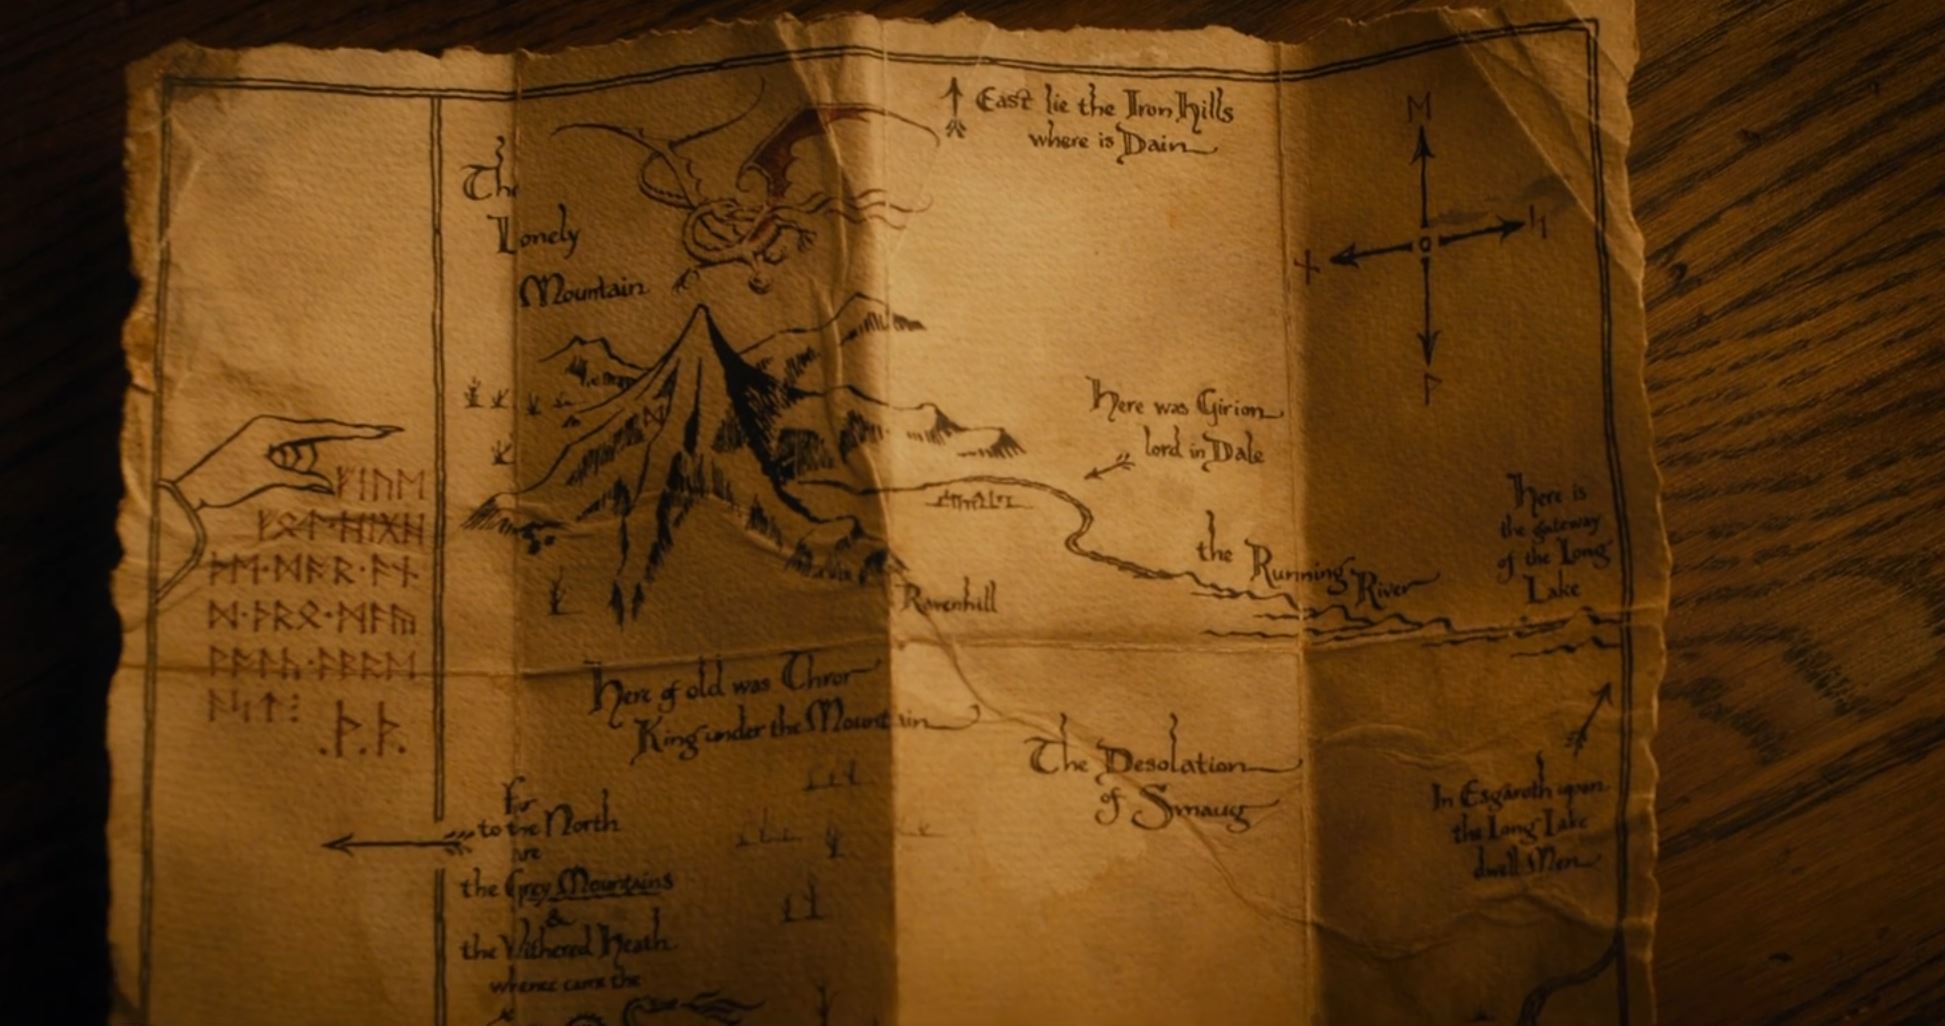 East lie the Iron Hills
where is Dain
The
Lonely
Mountain
ᛖ
ᚾ
ᛋ
ᚹ
ᛞ
Here was Girion
lord in Dale
ᚠᛁᚢᛖ
ᚠᚩᛏ·ᚻᛁᚷᚻ
ᚦᛖ·ᛞᚩᚱ·ᚪᚾ
ᛞ·ᚦᚱᛟ·ᛗᚪᚣ
ᚹᚪᛚᚳ·ᚪᛒᚱᛖ
ᚪᛋᛏ⁝
.ᚦ.ᚦ.
the Running River
Here is
the gateway
of the Long
Lake
Ravenhill
Here of old was Thror
King under the Mountain
The Desolation
of Smaug
In Esgaroth upon
the Long Lake
dwell Men
Far
to the North
are
the Grey Mountains
&
the Withered Heath
whence came the